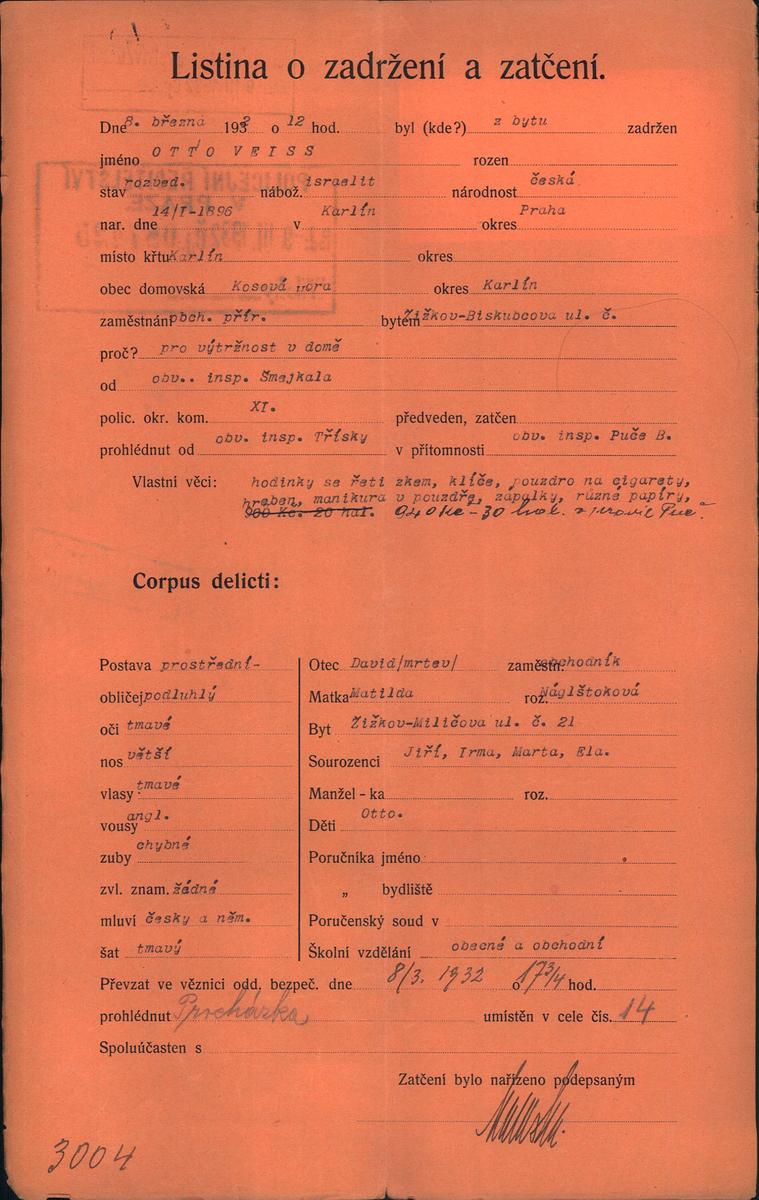 Listina o zadržení a zatčení.
Dne 8. března 1932 o 12 hod. byl (kde?) z bytu zadržen
jméno OTTO VEISS rozen
stav rozved. nábož. israelit národnost česká
nar. dne 14/I-1896 v Karlín okres Praha
místo křtu Karlín okres
obec domovská Kosová Hora okres Karlín
zaměstnání obch. přír. bytem Žižkov-Biskubcova ul. č.
proč? pro výtržnost v domě
od obv.. insp. Šmejkala
polic. okr. kom. XI. předveden, zatčen
prohlédnut od obv. insp. Třísky v přítomnosti obv. insp. Puče B.
Vlastní věci: hodinky se řetízkem, klíče, pouzdro na cigarety,
hřeben, manikura v pouzdře, zápalky, různé papíry,
900 Kč. 20 hal. 940 Kč - 30 hal.
Corpus delicti:
Postava prostřední-
obličej podluhlý
oči tmavé
nos větší
vlasy tmavé
vousy angl.
zuby chybné
zvl. znam. žádné
mluví česky a něm.
šat tmavý
Otec David/mrtev/ zaměstn. obchodník
Matka Matilda roz. Náglštoková
Byt Žižkov-Miličova ul. č. 21
Sourozenci Jiří, Irma, Marta, Ela.
Manžel - ka roz.
Děti Otto.
Poručníka jméno
„ bydliště
Poručenský soud v
Školní vzdělání obecné a obchodní
Převzat ve věznici odd. bezpeč. dne 8/3. 1932 o 17 3/4 hod.
prohlédnut Procházka umístěn v cele čís. 14
Spoluúčasten s
Zatčení bylo nařízeno podepsaným
3004